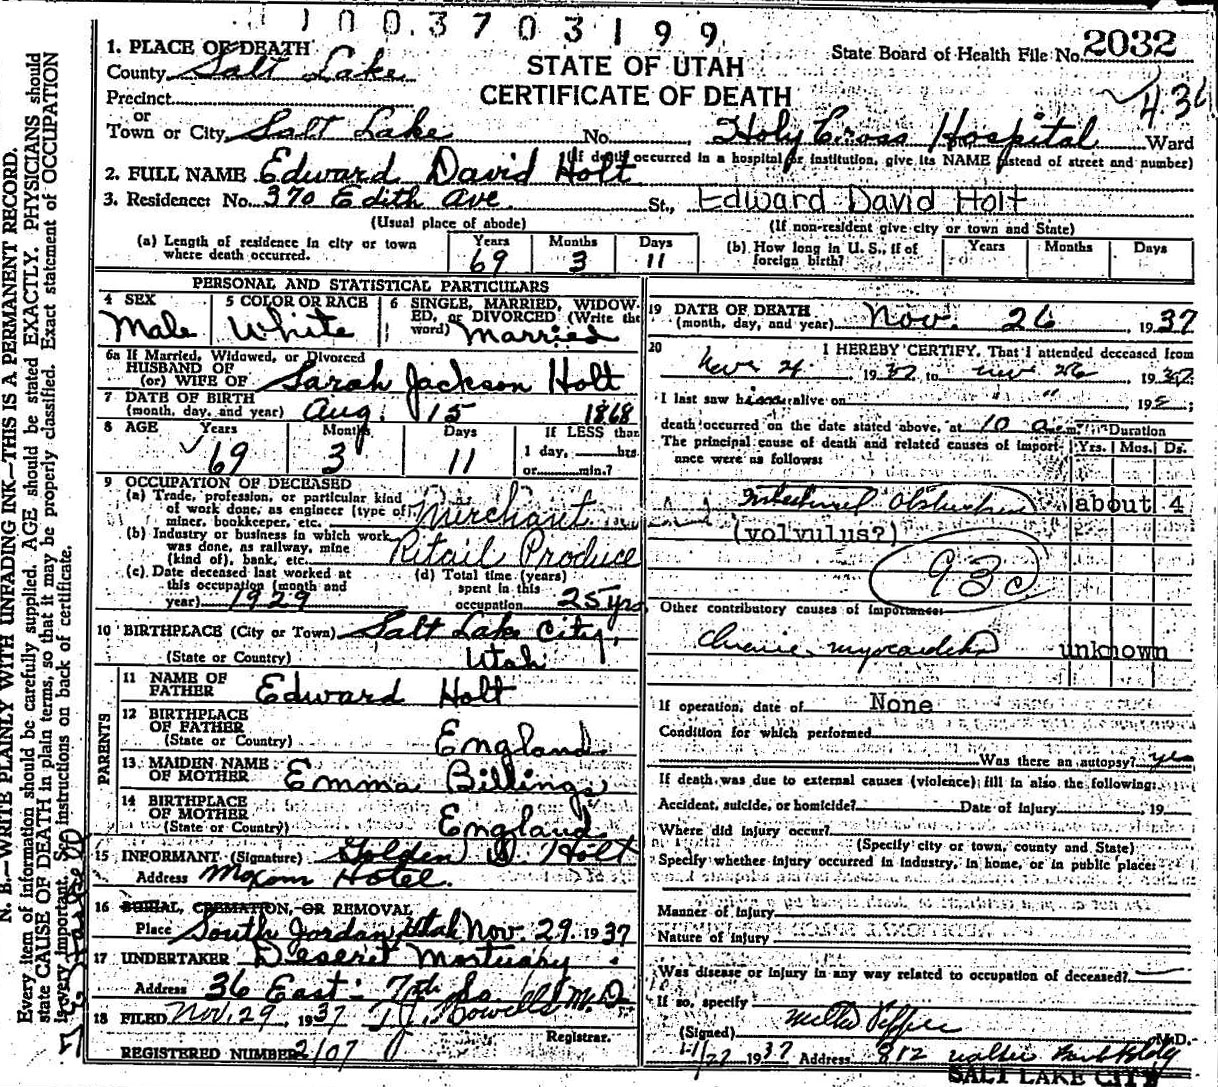 1003703199
1. PLACE OF DEATH
County Salt Lake
STATE OF UTAH
CERTIFICATE OF DEATH
State Board of Health File No. 2032
Precinct
or
Town or City Salt Lake No. Holy Cross Hospital Ward
(If death occurred in a hospital or institution, give its NAME instead of street and number)
2. FULL NAME Edward David Holt
3. Residence: No. 370 Edith Ave St., Edward David Holt
(Usual place of abode) (If non-resident give city or town and State)
(a) Length of residence in city or town where death occurred. Years 69 Months 3 Days 11
(b) How long in U. S., if of foreign birth? Years Months Days
PERSONAL AND STATISTICAL PARTICULARS
4 SEX Male
5 COLOR OR RACE White
6 SINGLE, MARRIED, WIDOWED, or DIVORCED (Write the word) Married
6a If Married, Widowed, or Divorced
HUSBAND OF
(or) WIFE OF Sarah Jackson Holt
7 DATE OF BIRTH
(month, day, and year) Aug. 15 1868
8 AGE Years 69 Months 3 Days 11
If LESS than
1 day, hrs.
or min.?
9 OCCUPATION OF DECEASED
(a) Trade, profession, or particular kind
of work done, as engineer (type of)
miner, bookkeeper, etc. Merchant
(b) Industry or business in which work
was done, as railway, mine
(kind of), bank, etc. Retail Produce
(c) Date deceased last worked at
this occupation (month and
year) 1929
(d) Total time (years)
spent in this
occupation 25 yrs
10 BIRTHPLACE (City or Town) Salt Lake City,
(State or Country) Utah
PARENTS
11 NAME OF
FATHER Edward Holt
12 BIRTHPLACE
OF FATHER
(State or Country) England
13 MAIDEN NAME
OF MOTHER Emma Billings
14 BIRTHPLACE
OF MOTHER
(State or Country) England
15 INFORMANT (Signature) Golden Holt
Address Moxom Hotel.
16 BURIAL, CREMATION, OR REMOVAL
Place South Jordan, Utah Nov. 29 1937
17 UNDERTAKER Deseret Mortuary
Address 36 East 7th So.
18 FILED Nov. 29, 1937 Howells M.D.
Registrar.
REGISTERED NUMBER 2107
19 DATE OF DEATH
(month, day, and year) Nov. 26 1937
20 I HEREBY CERTIFY, That I attended deceased from
Nov 1937 to Nov 26 1937
I last saw him alive on " " 19
death occurred on the date stated above, at 10 a.m.
Duration
The principal cause of death and related causes of importance were as follows:
Yrs. Mos. Ds.
Intestinal Obstruction about 4
(volvulus?)
93c
Other contributory causes of importance:
unknown
If operation, date of None
Condition for which performed
Was there an autopsy? yes
If death was due to external causes (violence) fill in also the following:
Accident, suicide, or homicide? Date of injury 19
Where did injury occur?
(Specify city or town, county and State)
Specify whether injury occurred in industry, in home, or in public place:
Manner of Injury
Nature of injury
Was disease or injury in any way related to occupation of deceased?
If so, specify
(Signed) M.D.
11/27 1937 Address 812 Walker Bank Bldg
SALT LAKE CITY
N. B.—WRITE PLAINLY WITH UNFADING INK—THIS IS A PERMANENT RECORD.
Every item of information should be carefully supplied. AGE should be stated EXACTLY. PHYSICIANS should
state CAUSE OF DEATH in plain terms, so that it may be properly classified. Exact statement of OCCUPATION
is very important. See instructions on back of certificate.